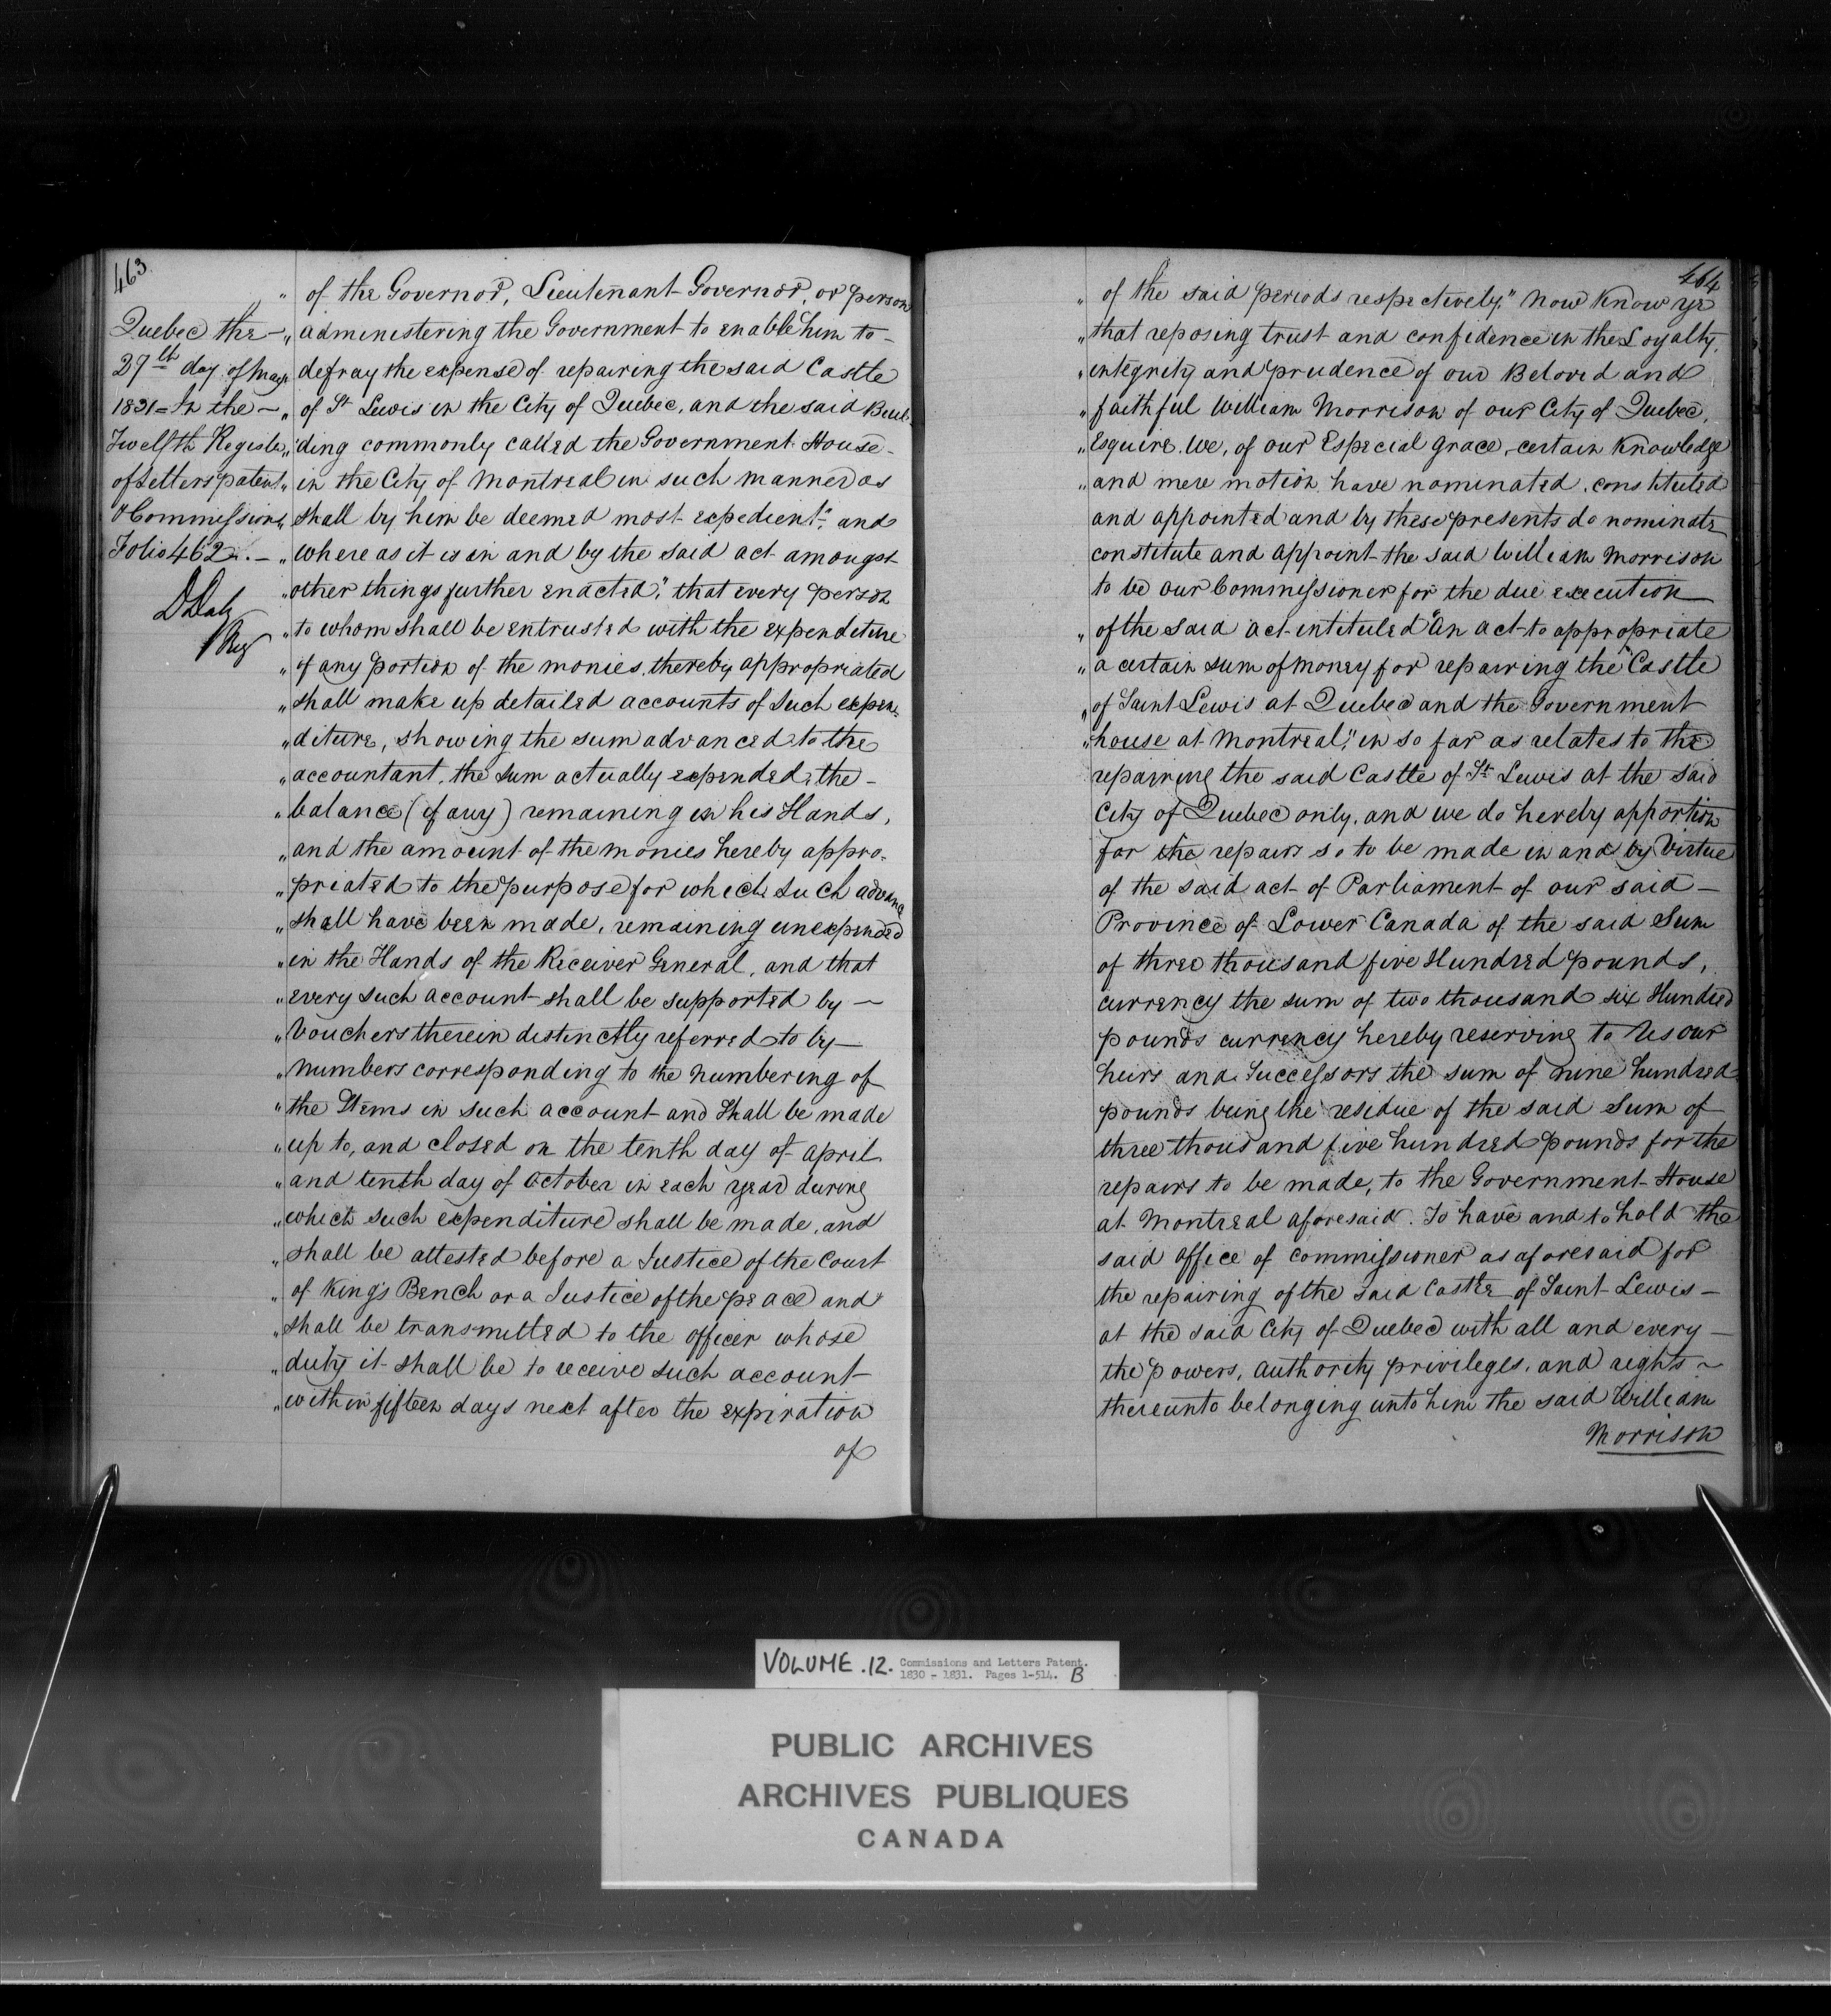 463
Quebec the —
27th day of May
1831 = In the —
Twelfth Register
of Letters patent
& Commissions
Folio 462. —
D Daly
Reg
" of the Governor, Lieutenant Governor, or person
" administering the Government to enable him to -
defray the expense of repairing the said Castle
" of St Lewis in the City of Quebec, and the said Buil-
" ding commonly called the Government House -
" in the City of Montreal in such manner as
" shall by him be deemed most expedient", and
" where as it is in and by the said act amongst
" other things further enacted," that every person
" to whom shall be entrusted with the expenditure
" if any portion of the monies, thereby appropriated
" shall make up detailed accounts of such expen-
" diture, showing the sum advanced to the
" accountant, the sum actually expended, the -
" balance (if any) remaining in his Hands,
" and the amount of the monies hereby appro-
" priated to the purpose for which such advance
" shall have been made, remaining unexpended
" in the Hands of the Receiver General, and that
" every such account shall be supported by —
" Vouchers therein distinctly referred to by —
" numbers corresponding to the numbering of
" the Items in such account and shall be made
" up to, and closed on the tenth day of April
" and tenth day of October in each year during
" which such expenditure shall be made, and
" shall be attested before a Justice of the Court
" of King's Bench or a Justice of the peace and
" shall be transmitted to the officer whose
" duty it shall be to receive such account
" within fifteen days next after the expiration
of
464
" of the said periods respectively," Now Know ye
" that reposing trust and confidence in the Loyalty,
" integrity and prudence of our Beloved and
" faithful William Morrison of our City of Quebec,
" Esquire, We, of our Especial grace, certain Knowledge
" and mere motion have nominated, constituted
and appointed and by these presents do nominate
constitute and appoint the said William Morrison
to be our Commissioner for the due execution
" of the said act intituled "An act to appropriate
" a certain sum of money for repairing the Castle
" of Saint Lewis at Quebec and the Government
" house at Montreal," in so far as relates to the
repairing the said Castle of St Lewis at the said
City of Quebec only, and we do hereby apportion
for the repairs so to be made in and by Virtue
of the said act of Parliament of our said —
Province of Lower Canada of the said Sum
of three thousand five Hundred pounds,
currency the sum of two thousand six Hundred
pounds currency hereby reserving to Us our
heirs and Successors the sum of nine hundred
pounds being the residue of the said Sum of
three thousand five hundred pounds for the
repairs to be made, to the Government House
at Montreal aforesaid. To have and to hold the
said office of commissioner as aforesaid for
the repairing of the said Castle of Saint Lewis —
at the said City of Quebec with all and every —
the powers, authority privileges, and rights ~
thereunto belonging unto him the said William
Morrison
VOLUME .12. Commissions and Letters Patent.
1830 - 1831. Pages 1-514. B
PUBLIC ARCHIVES
ARCHIVES PUBLIQUES
CANADA